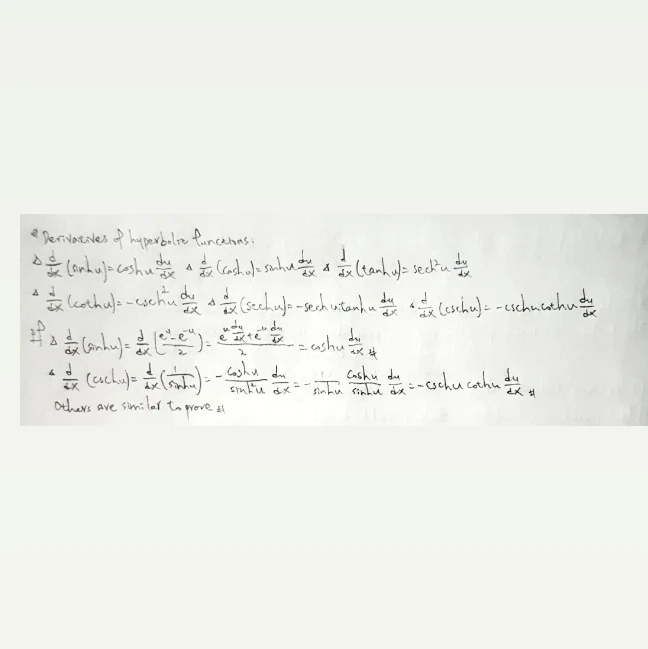 * Derivatives of hyperbolic functions:
△ d/dx (sinhu) = coshu du/dx △ d/dx (coshu) = sinhu du/dx △ d/dx (tanhu) = sech²u du/dx
△ d/dx (cothu) = -csch²u du/dx △ d/dx (sechu) = -sechutanhu du/dx △ d/dx (cschu) = -cschucothu du/dx
pf △ d/dx (sinhu) = d/dx (e^u - e^-u / 2) = e^u du/dx + e^-u du/dx / 2 = coshu du/dx #
△ d/dx (cschu) = d/dx (1/sinhu) = - coshu/sinh²u du/dx = - 1/sinhu coshu/sinhu du/dx = -cschu cothu du/dx #
Others are similar to prove #